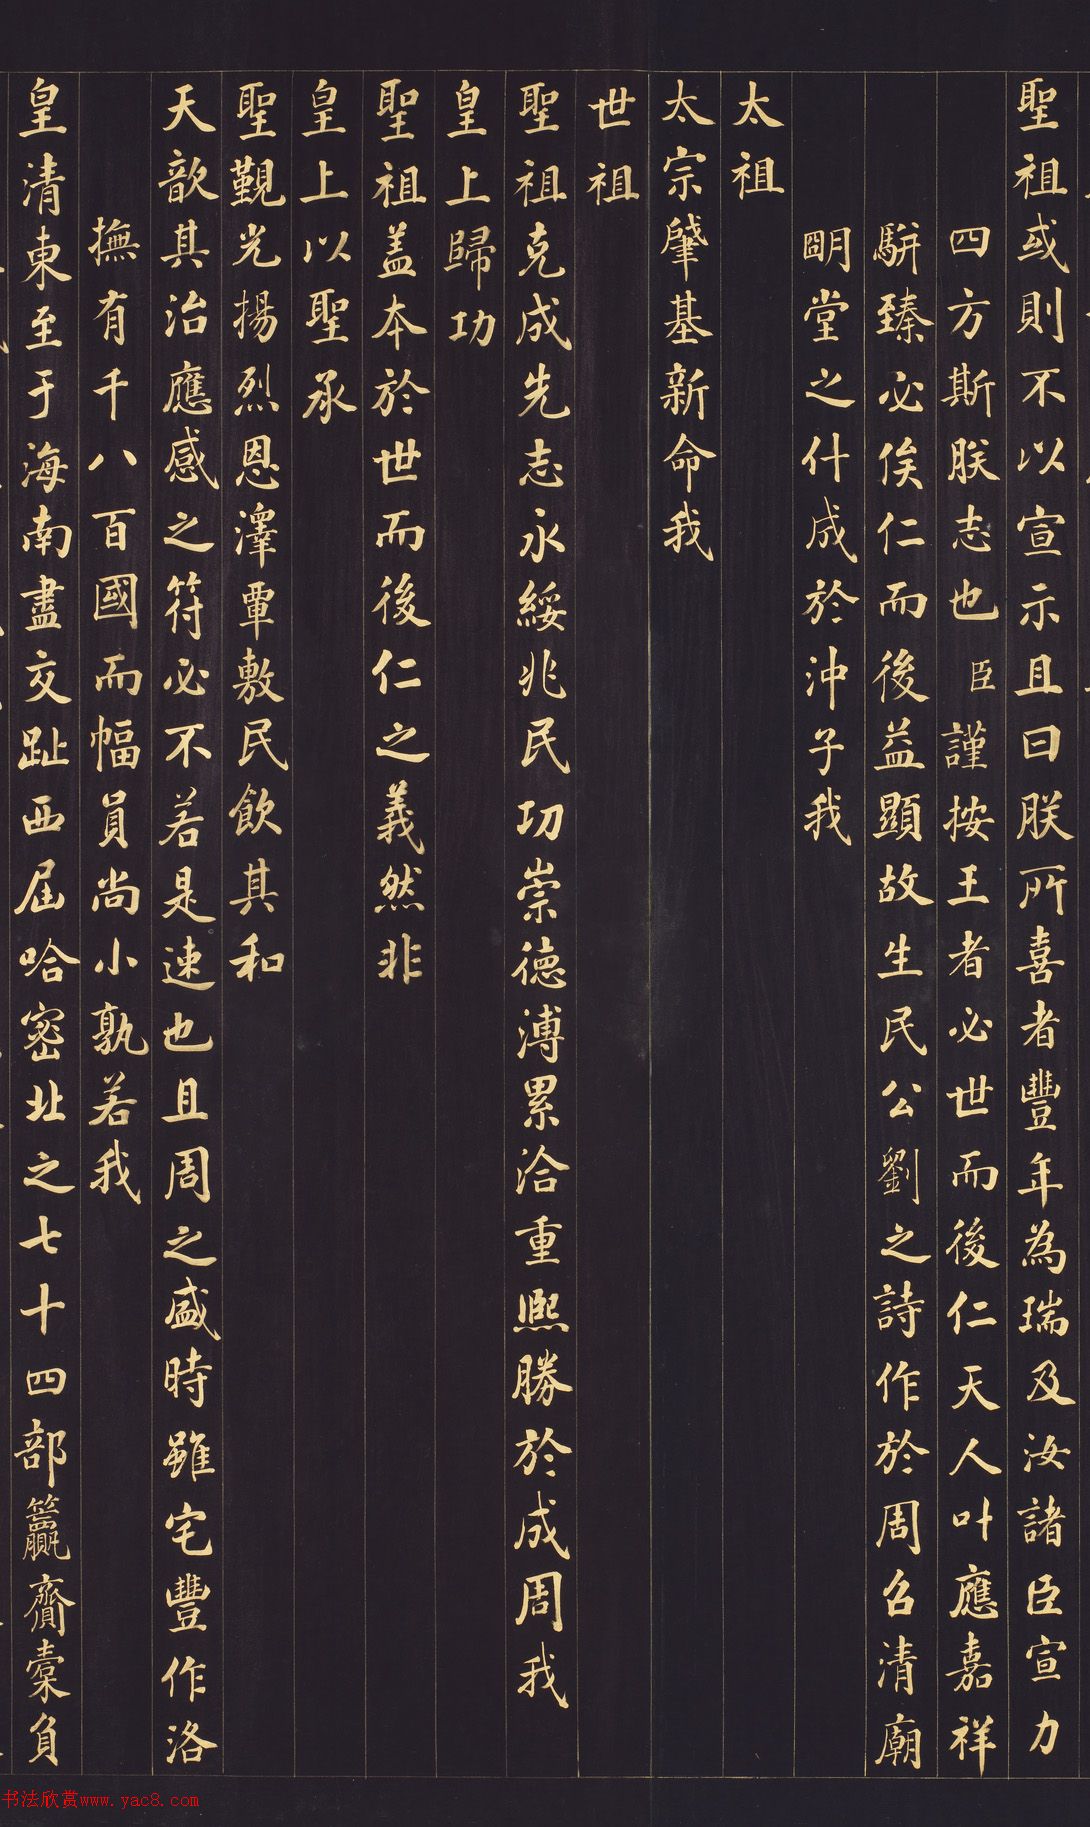 聖祖或則不以宣示且曰朕所喜者豐年為瑞及汝諸臣宣力
四方斯朕志也臣謹按王者必世而後仁天人叶應嘉祥
駢臻必俟仁而後益顯故生民公劉之詩作於周召清廟
朙堂之什成於沖子我
太祖
太宗肇基新命我
世祖
聖祖克成先志永綏兆民功崇德溥累洽重熙勝於成周我
皇上歸功
聖祖盖本於世而後仁之義然非
皇上以聖承
聖覲光揚烈恩澤覃敷民飲其和
天歆其治應感之符必不若是速也且周之盛時雖宅豐作洛
撫有千八百國而幅員尚小孰若我
皇清東至于海南盡交趾西届哈密北之七十四部籯齎橐負
书法欣赏www.yac8.com